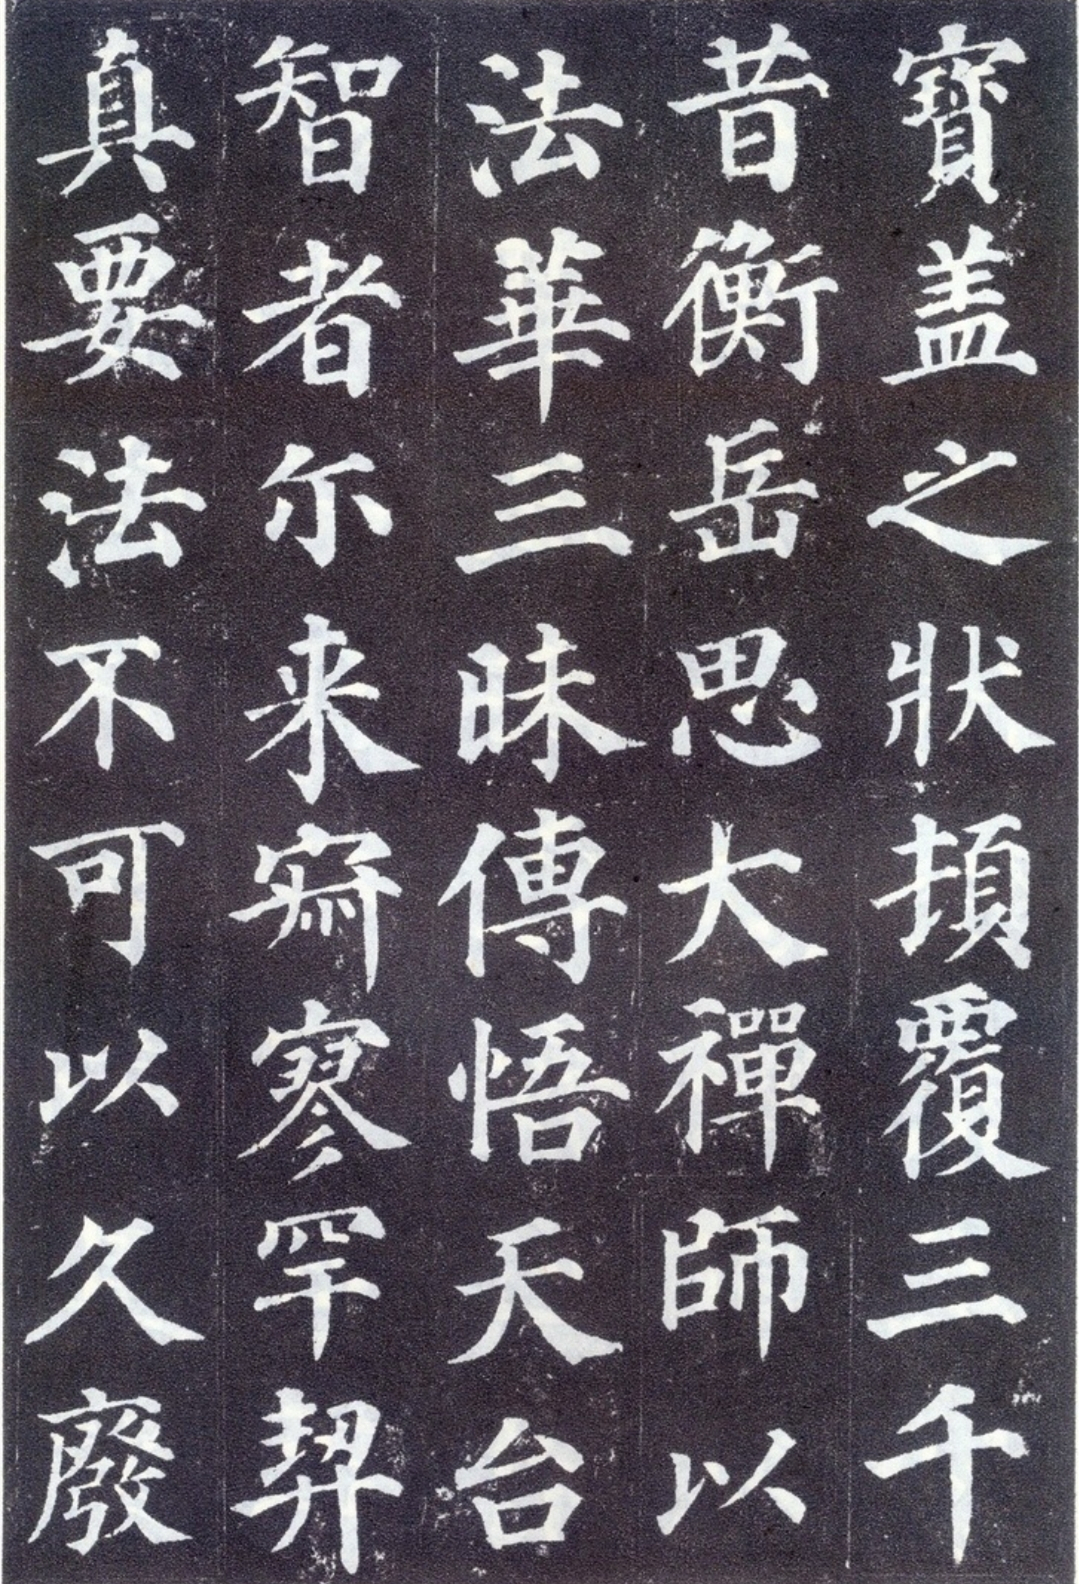 寶盖之狀頓覆三千
昔衡岳思大禪師以
法華三昧傳悟天台
智者尓来寂寥罕契
真要法不可以久廢